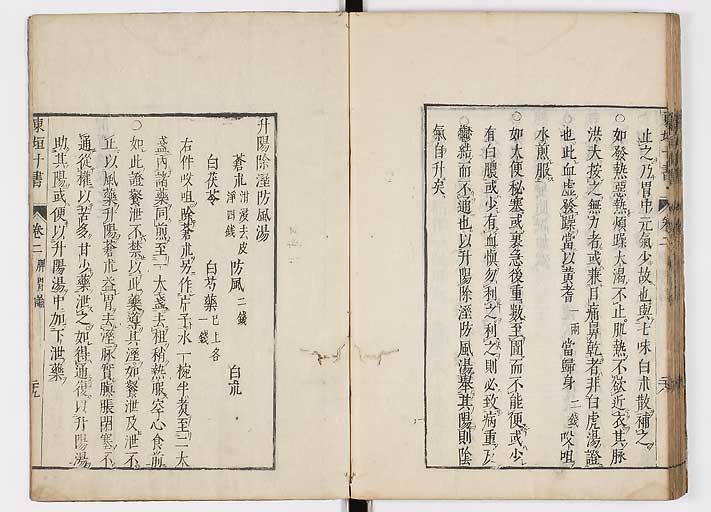 止之乃胃中元氣少故也與七味白朮散補之
○如發熱惡熱煩躁大渴不止肌熱不欲近衣其脉
洪大按之無力者或兼目痛鼻乾者非白虎湯證
也此血虛發躁當以黃耆一兩當歸身二錢㕮咀
水煎服
○如大便秘塞或裏急後重數至圊而不能便或少
有白膿或少有血慎勿利之利之則必致病重反
鬱結而不通也以升陽除溼防風湯舉其陽則陰
氣自升矣
升陽除溼防風湯
蒼朮泔浸去皮淨四錢 防風二錢 白朮
白茯苓 白芍藥已上各一錢
右件㕮咀除蒼朮另作片子水一椀半煮至二大
盞內諸藥同煎至一大盞去柤稍熱服空心食前
○如此證飱泄不禁以此藥導其溼如飱泄及泄不
止以風藥升陽蒼朮益胃去溼脉實䐜脹閉塞不
通從權以苦多甘少藥泄之如得通復以升陽湯
助其陽或便以升陽湯中加下泄藥
東垣十書 卷二 脾胃論 二十九